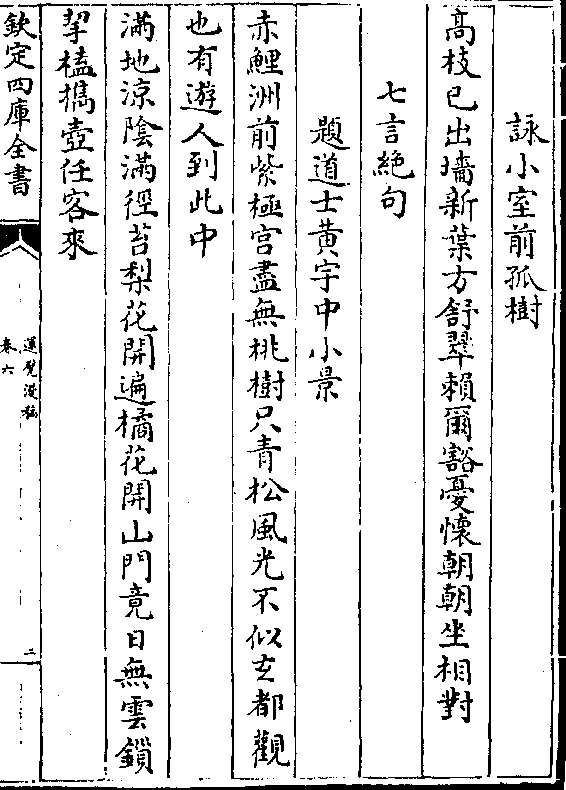 詠小室前孤樹
高枝已出墻新葉方舒翠賴爾豁憂懷朝朝坐相對
七言絶句
題道士黄宇中小景
赤鯉洲前紫極宫盡無桃樹只青松風光不似玄都觀
也有遊人到此中
滿地涼陰滿徑苔梨花開遍橘花開山門竟日無雲鎖
挈榼攜壺任客來
欽定四庫全書
運甓漫稿
卷六
二